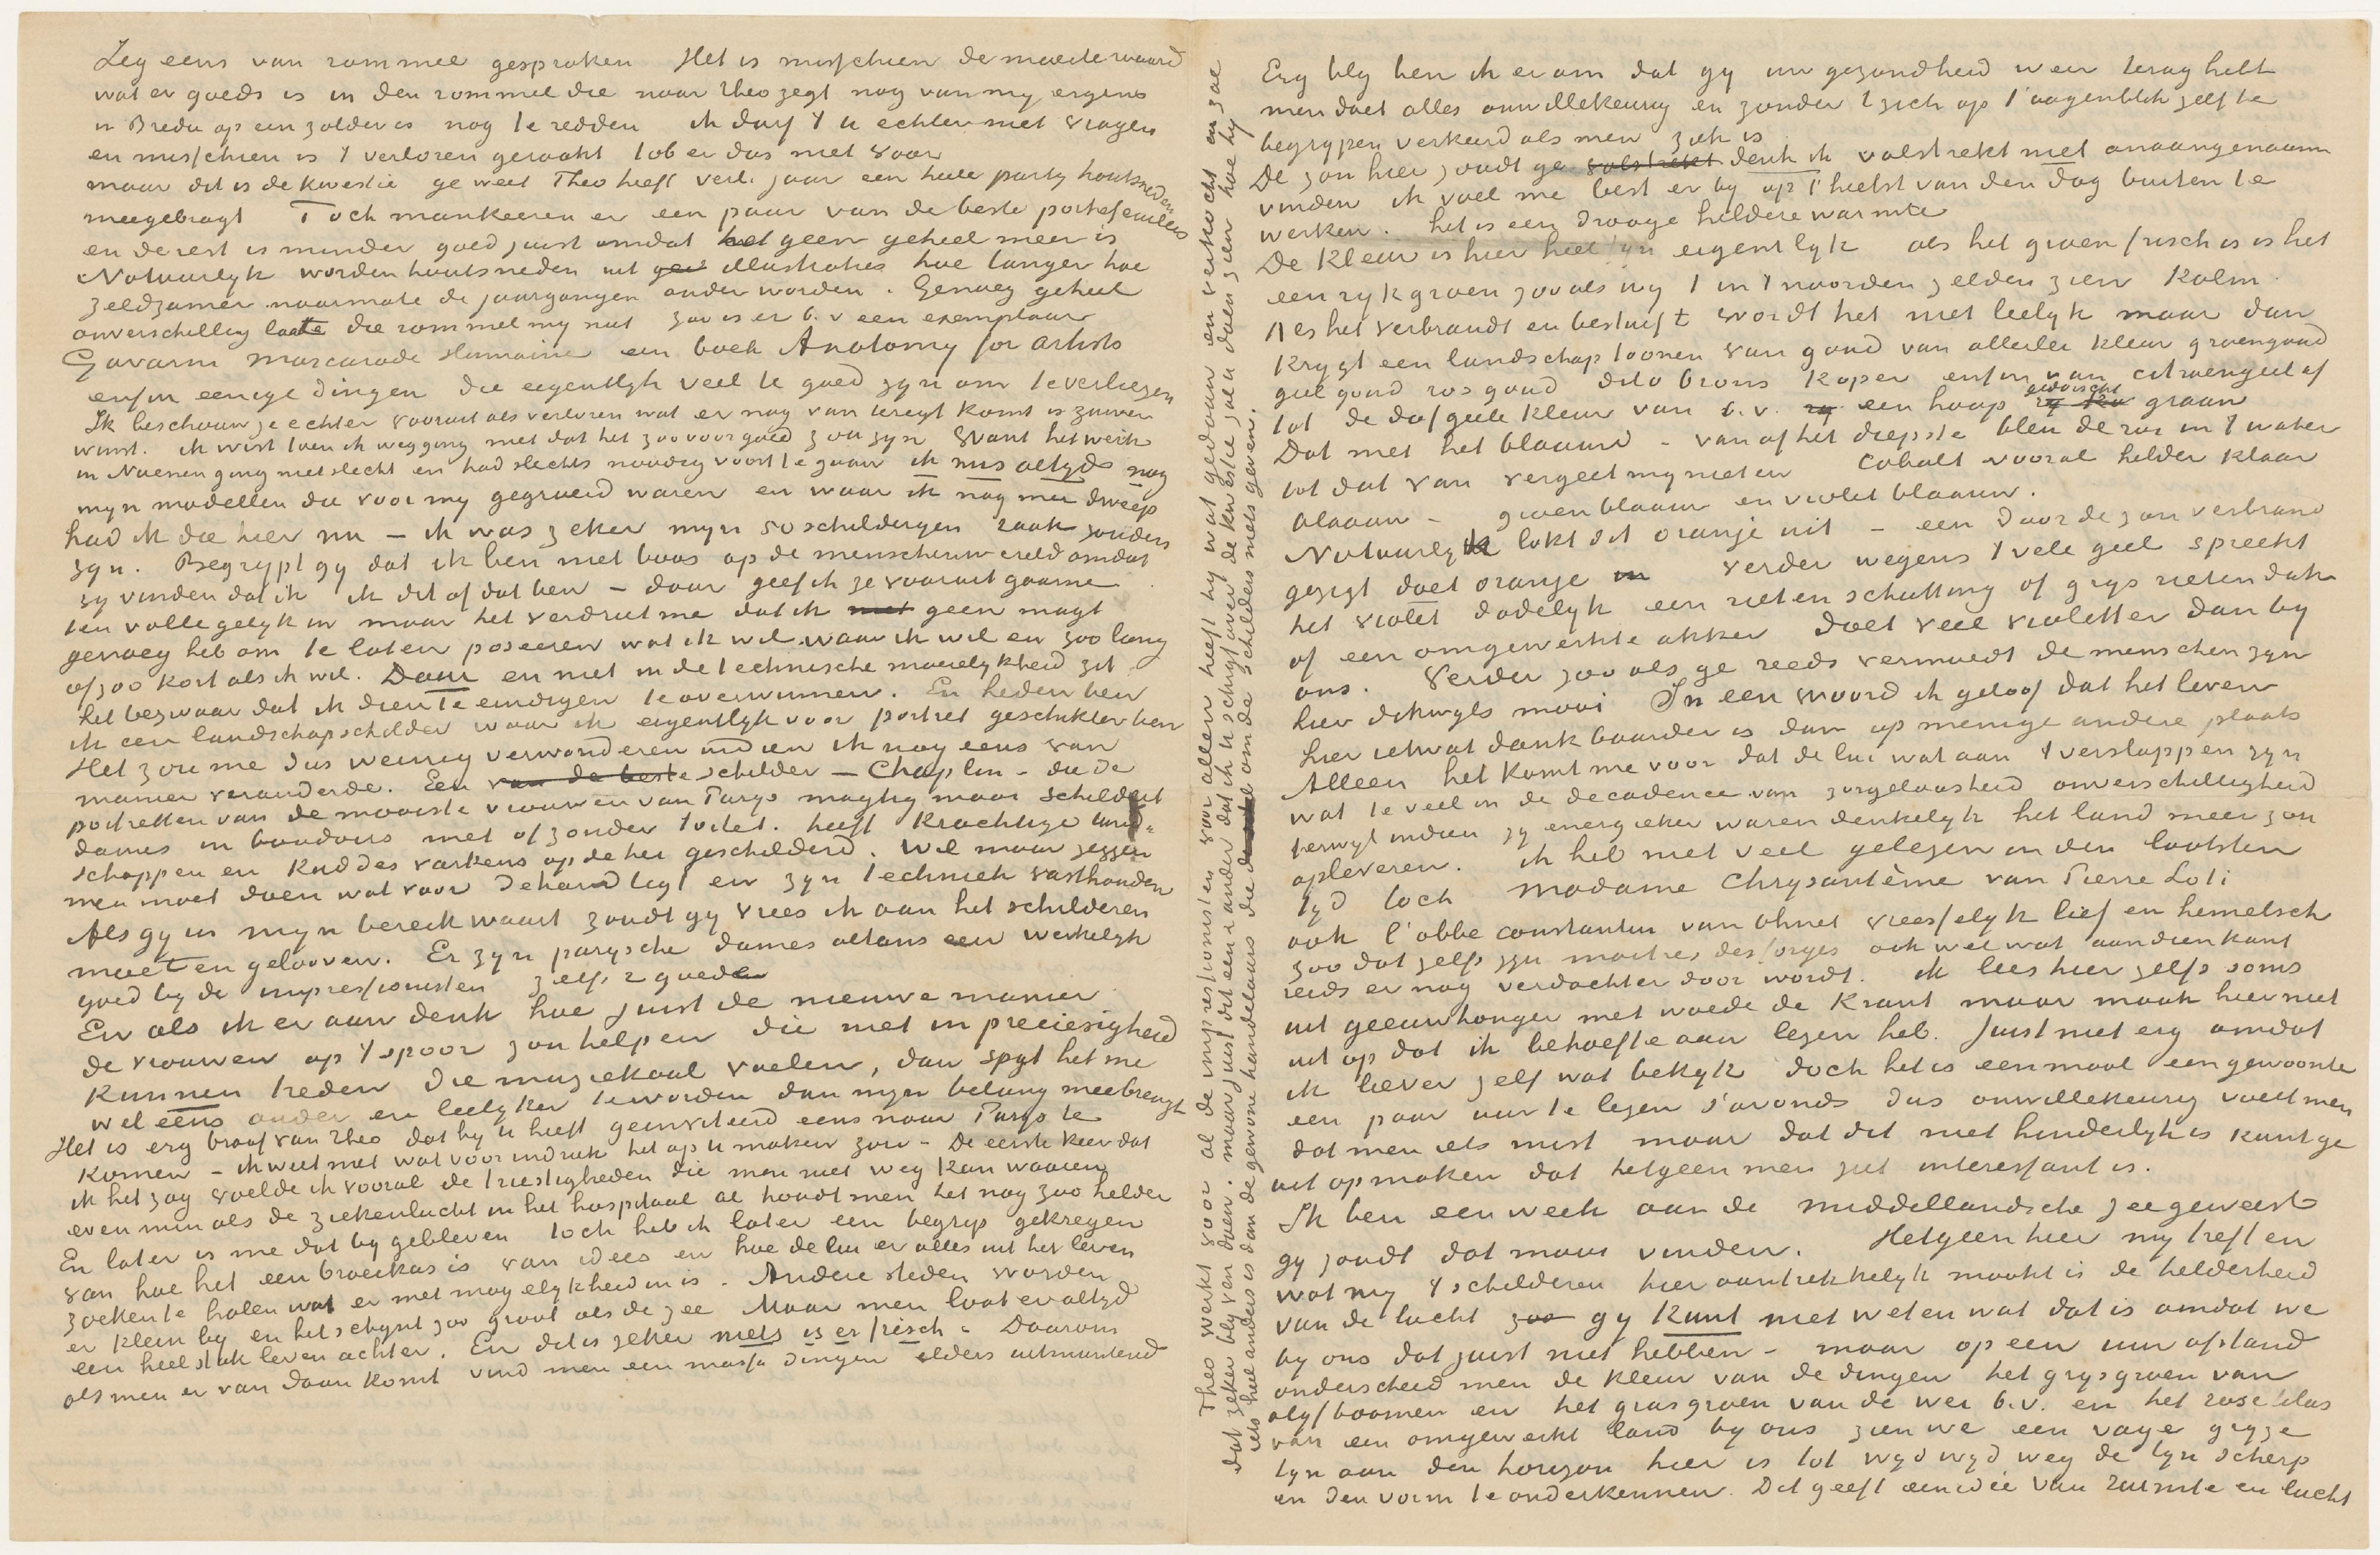 Zeg eens van rommel gesproken Het is misschien de moeite waard
wat er goeds is in den rommel die naar Theo zegt nog van my ergens
in Breda op een zolder is nog te redden ik durf 't u echter niet vragen
en misschien is 't verloren geraakt tob er dus niet voor
maar dit is de kwestie ge weet Theo heeft verl. jaar een heele party houtsneden
meegebragt Toch mankeeren er een paar van de beste portefeuilles
en de rest is minder goed juist omdat het geen geheel meer is
Natuurlyk worden houtsneden uit geil illustraties hoe langer hoe
zeldzamer naarmate de jaargangen ouder worden. Genoeg geheel
onverschillig laat die rommel my niet zoo is er b.v een exemplaar
Gavarni Mascarade Humaine een boek Anatomy for artists
enfin eenige dingen die eigentlyk veel te goed zyn om te verliezen
Ik beschouw ze echter vooruit als verloren wat er nog van teregt komt is zuiver
winst. ik wist toen ik wegging niet dat het zoo voor goed zou zyn Want het werk
in Nuenen ging niet slecht en had slechts noodig voort te gaan ik mis altyd nog
myn modellen die voor my gegroeid waren en waar ik nog mee dweep
had ik die hier nu – ik was zeker myn 50 schilderyen raak zouden
zyn. Begrypt gy dat ik ben niet boos op de menschenwereld omdat
zy vinden dat ik ik dit of dat ben – daar geef ik ze vooruit gaarne
ten volle gelyk in maar het verdriet me dat ik niet geen magt
genoeg heb om te laten poseeren wat ik wil waar ik wil en zoo lang
of zoo kort als ik wil. Daar en niet in de technische moeielykheid zit
het bezwaar dat ik dien te eindigen te overwinnen. En heden ben
ik een landschapschilder waar ik eigentlyk voor portret geschikter ben
Het zou me dus weinig verwonderen indien ik nog eens van
manier veranderde. Een van de beste schilder – Chaplin – die de
portretten van de mooiste vrouwen van Parys magtig mooi schildert
dames in boudoirs met of zonder toilet. heeft krachtige land-
schappen en kuddes varkens op de hei geschilderd. Wil maar zeggen
men moet doen wat voor de hand legt en zyn techniek vasthouden
Als gy in myn bereik waart zoudt gy vrees ik aan het schilderen
moeten gelooven. Er zyn parysche dames altans een werkelyk
goed by de impressionisten zelfs 2 goede
En als ik er aan denk hoe juist de nieuwe manier
de vrouwen op 't spoor zou helpen die niet in preciesigheid
kunnen treden die muziekaal voelen, dan spyt het me
wel eens ouder en leelyker te worden dan myn belang meebrengt
Het is erg braaf van Theo dat hy u heeft geinviteerd eens naar Parys te
komen – ik weet niet wat voor indruk het op u maken zou – De eerste keer dat
ik het zag voelde ik vooral de triestigheden die men niet weg kan waaien
evenmin als de ziekenlucht in het hospitaal al houdt men het nog zoo helder
En later is me dat bygebleven toch heb ik later een begrip gekregen
van hoe het een broeikas is van idees en hoe de lui er alles uit het leven
zoeken te halen wat er met mogelykheid in is. Andere steden worden
er klein by en het schynt zoo groot als de zee Maar men laat er altyd
een heel stuk leven achter. En dit is zeker niets is er frisch. Daarom
als men er van daan komt vind men een massa dingen elders uitmuntend
Erg bly ben ik er om dat gy uw gezondheid weer terug hebt
men doet alles onwillekeurig en zonder 't zich op 't oogenblik zelf te
begrypen verkeerd als men ziek is
De zon hier zoudt ge volstrekt denk ik volstrekt niet onaangenaam
vinden ik voel me best er by op 't heetst van den dag buiten te
werken. het is een drooge heldere warmte
De kleur is hier heel fyn eigentlyk als het groen frisch is is het
een ryk groen zooals wy 't in 't noorden zelden zien kalm
Als het verbrandt en bestuift wordt het niet leelyk maar dan
krygt een landschap toonen van goud van allerlei kleur groengoud
geelgoud rosgoud dito brons koper enfin van citroengeel af
tot de dofgeele kleur van b.v. een hoop gedorscht graan
Dat met het blaauw – van af het diepste bleu de roi in 't water
tot dat van vergeetmynieten Cobalt vooral helder klaar
blaauw – groen blaauw en violet blaauw.
Natuurlyk lokt dit oranje uit – een door de zon verbrand
gezigt doet oranje in verder wegens 't vele geel spreekt
het violet dadelyk een rieten schutting of grys rieten dak
of een omgewerkte akker doet veel violetter dan by
ons. Verder zooals ge reeds vermoedt de menschen zyn
hier dikwyls mooi In een woord ik geloof dat het leven
hier ietwat dankbaarder is dan op menige andere plaats
Alleen het komt me voor dat de lui wat aan 't verslappen zyn
wat te veel in de decadence van zorgeloosheid onverschilligheid
terwyl indien zy energieker waren denkelyk het land meer zou
opleveren. ik heb niet veel gelezen in den laatsten
tyd toch Madame Chrysantème van Pierre Loti
ook l'abbe constantin van Ohnet vreesselyk lief en hemelsch
zoo dat zelfs zyn maitres des forges ook wel wat aan dien kant
reeds er nog verdachter door wordt. ik lees hier zelfs soms
uit geeuwhonger met woede de krant maar maak hier niet
uit op dat ik behoefte aan lezen heb. Juist niet erg omdat
ik liever zelf wat bekyk doch het is eenmaal een gewoonte
een paar uur te lezen s'avonds dus onwillekeurig voelt men
dat men iets mist maar dat dit niet hinderlyk is kunt ge
uit opmaken dat hetgeen men ziet interessant is.
Ik ben een week aan de middellandsche zee geweest
gy zoudt dat mooi vinden. Hetgeen hier my treft en
wat my 't schilderen hier aantrekkelyk maakt is de helderheid
van de lucht zoo gy kunt niet weten wat dat is omdat we
by ons dat juist niet hebben – maar op een uur afstand
onderscheid men de kleur van de dingen het grysgroen van
olyfboomen en het grasgroen van de wei b.v. en het rose lilas
van een omgewerkt land by ons zien we een vage gryze
lyn aan den horizon hier is tot wyd wyd weg de lyn scherp
en den vorm te onderkennen. Dit geeft een idee van ruimte en lucht
Theo werkt voor al de impressionisten voor allen heeft hy wat gedaan en verkocht en zal
dat zeker blyven doen. maar juist dit een en ander dat ik u schryf over de kwestie zal u doen zien hoe hy
iets heel anders is dan de gewone handelaars die de schilders niets gaven.